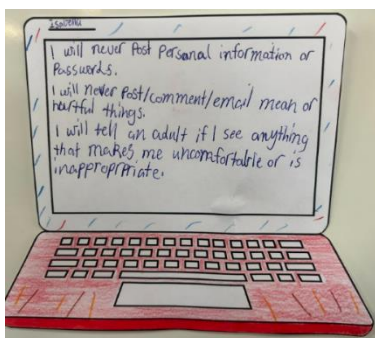 I will never Post Personal information or
Passwords.
I will never Post/comment/email mean or
heartful things.
I will tell an adult if I see anything
that makes me uncomfortable or is
inapproprriate.